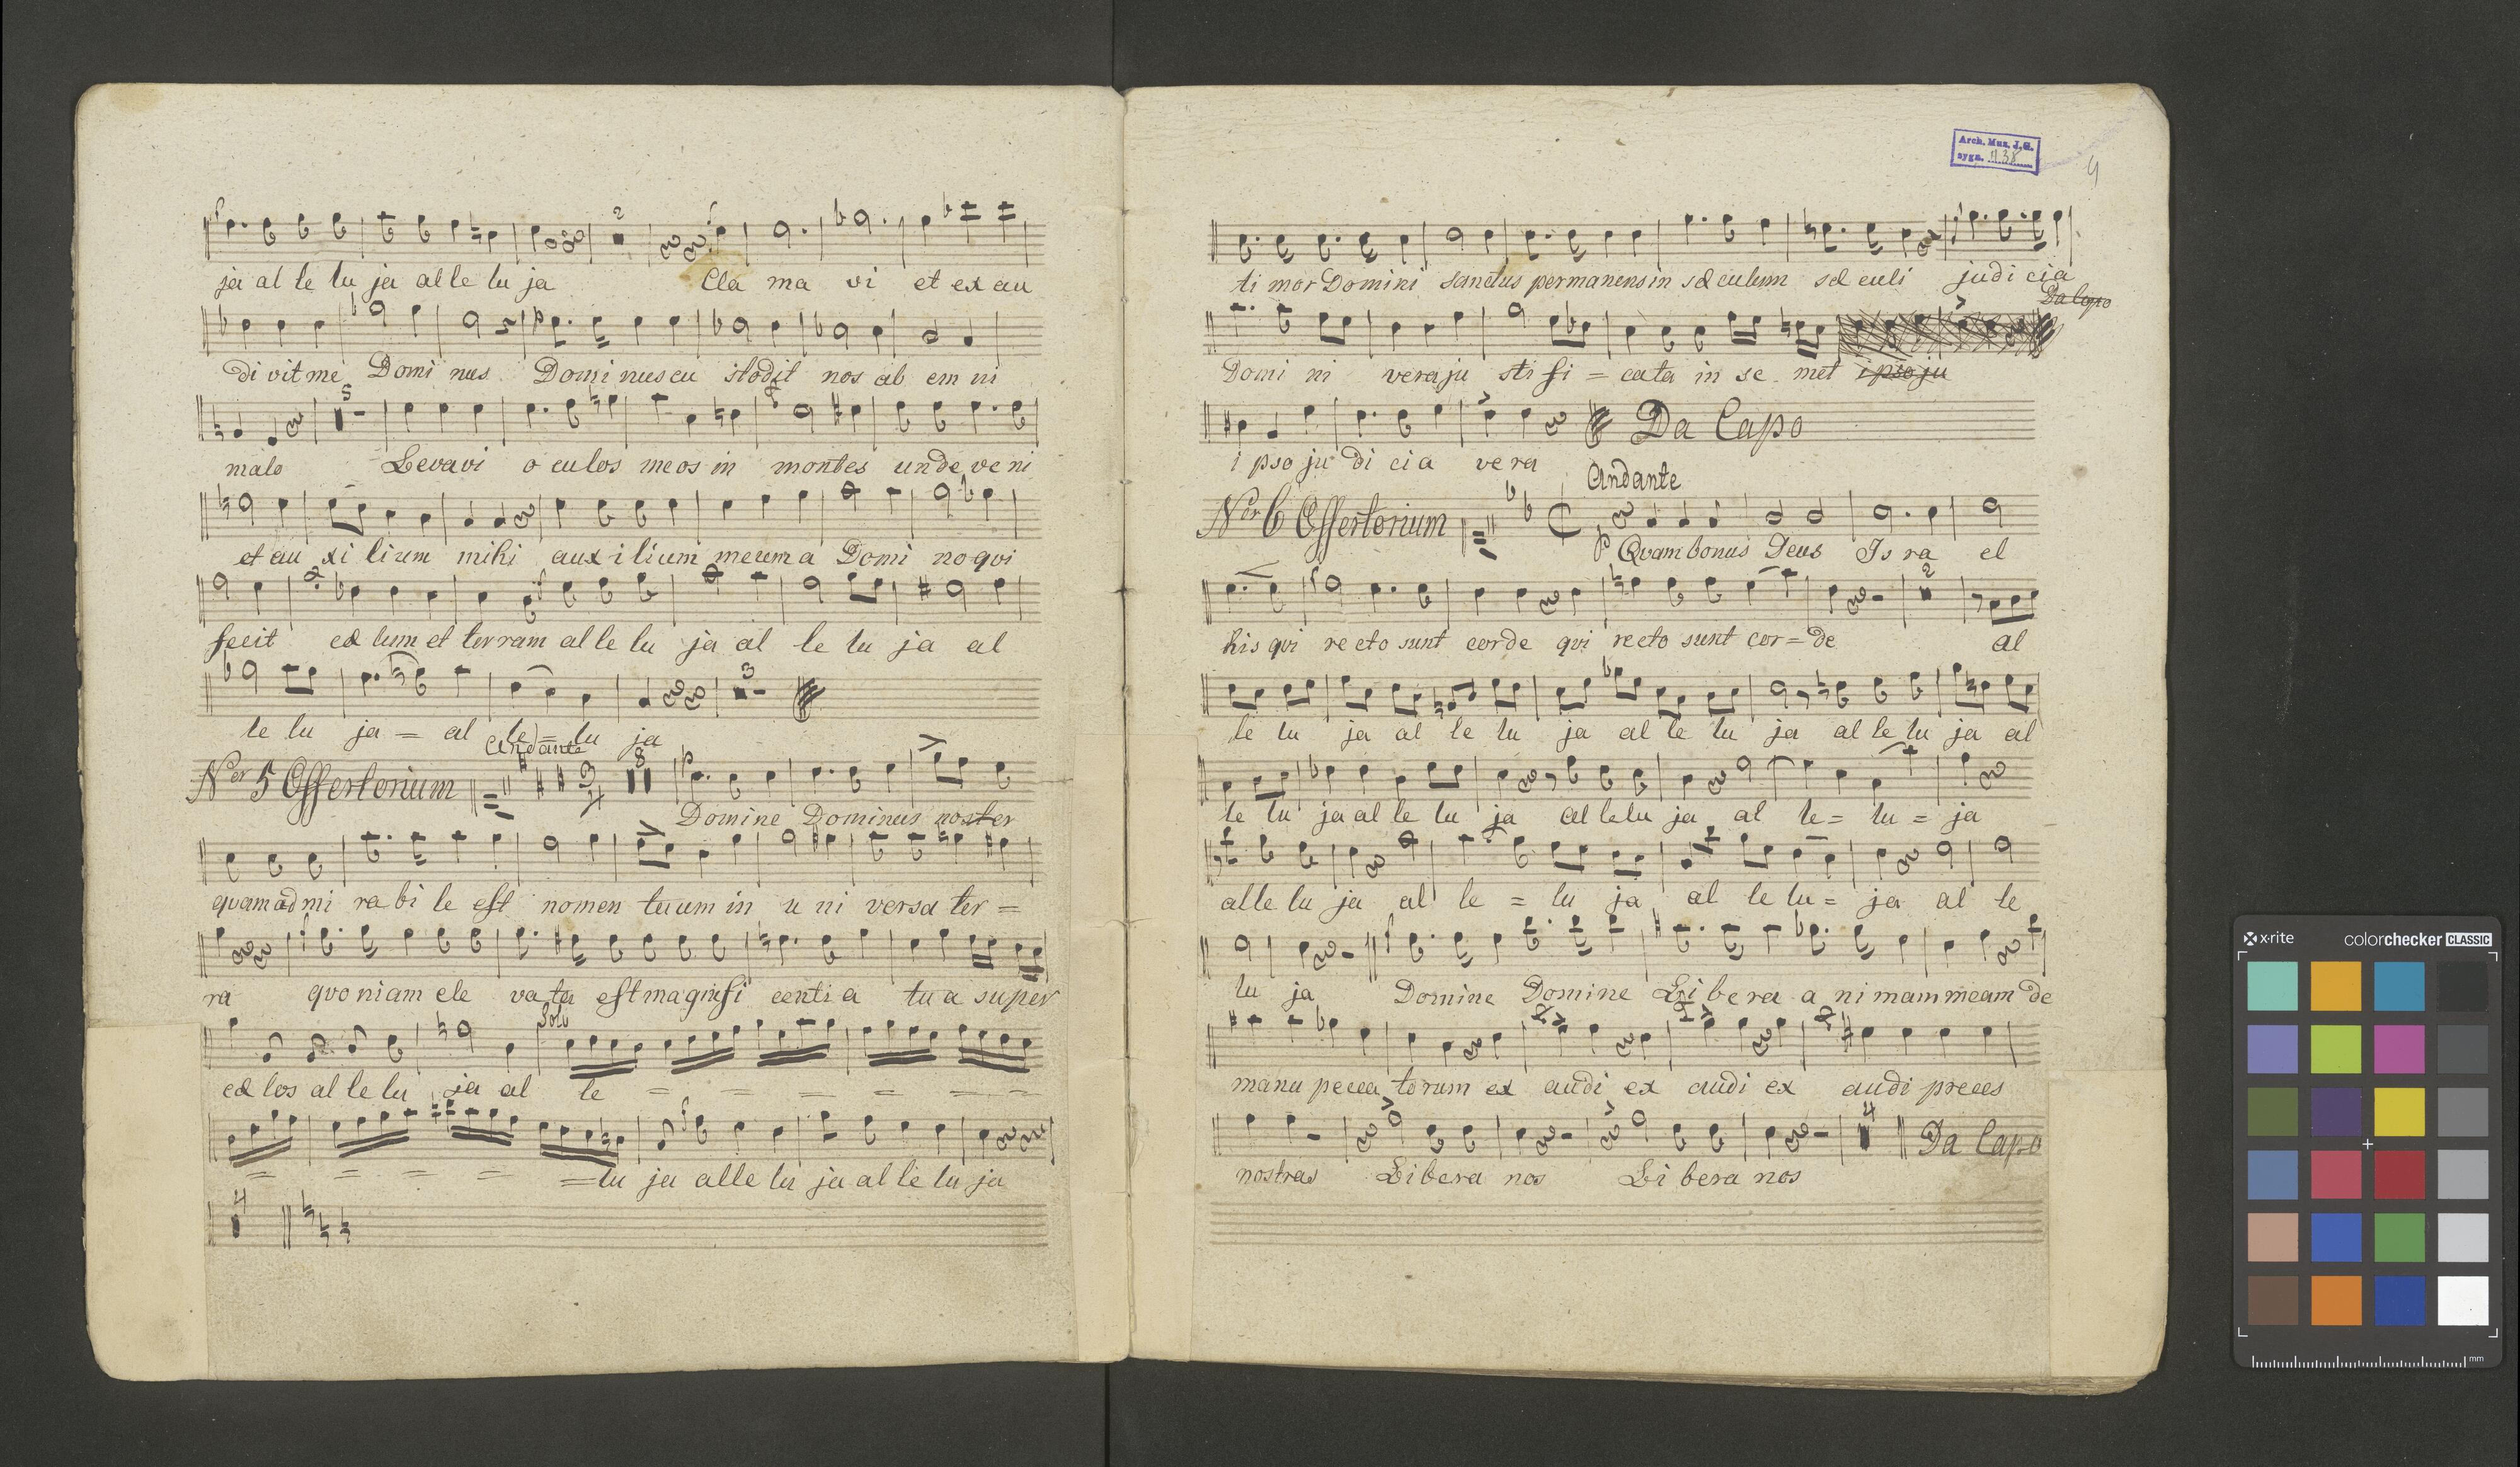 ja al le lu ja al le lu ja Cla ma vi et ex au
2
di vit me Domi nus Domi nus cu stodit nos ab om ni
malo Levavi o culos meos in montes unde ve ni
5
et au xi lium mihi aux i lium meum a Domi no qvi
fecit cæ lum et terram al le lu ja al le lu ja al
le lu ja = al le = lu ja
3
Andante
Nor 5 Offertorium 3/4 8
Domine Dominus noster
qvam ad mi ra bi le est nomen tuum in u ni versa ter =
ra qvo niam ele va ta est magnifi centi a tu a super
Solo
cæ los al le lu ja al le = = = = = =
= = = = = lu ja alle lu ja al le lu ja
4
Arch. Muz. J.G.
sygn. 1138
9
ti mor Domini sanctus permanens in sæ culum sæ culi judi cia
Da Capo
Domi ni vera ju sti fi = cata in se met ipso ju
Da Capo
i pso ju di cia vera
Andante
Nor 6 Offertorium C
p Qvam bonus Deus Is ra el
2
his qvi recto sunt corde qvi recto sunt cor = de al
le lu ja al le lu ja al le lu ja al le lu ja al
le lu ja al le lu ja al le lu ja al le = lu = ja
alle lu ja al le = lu ja al le lu = ja al le
lu ja Domine Domine Li be ra a ni mam meam de
manu pecca torum ex audi ex audi ex audi preces
4 Da Capo
nostras Libera nos Li bera nos
x-rite colorchecker CLASSIC
mm